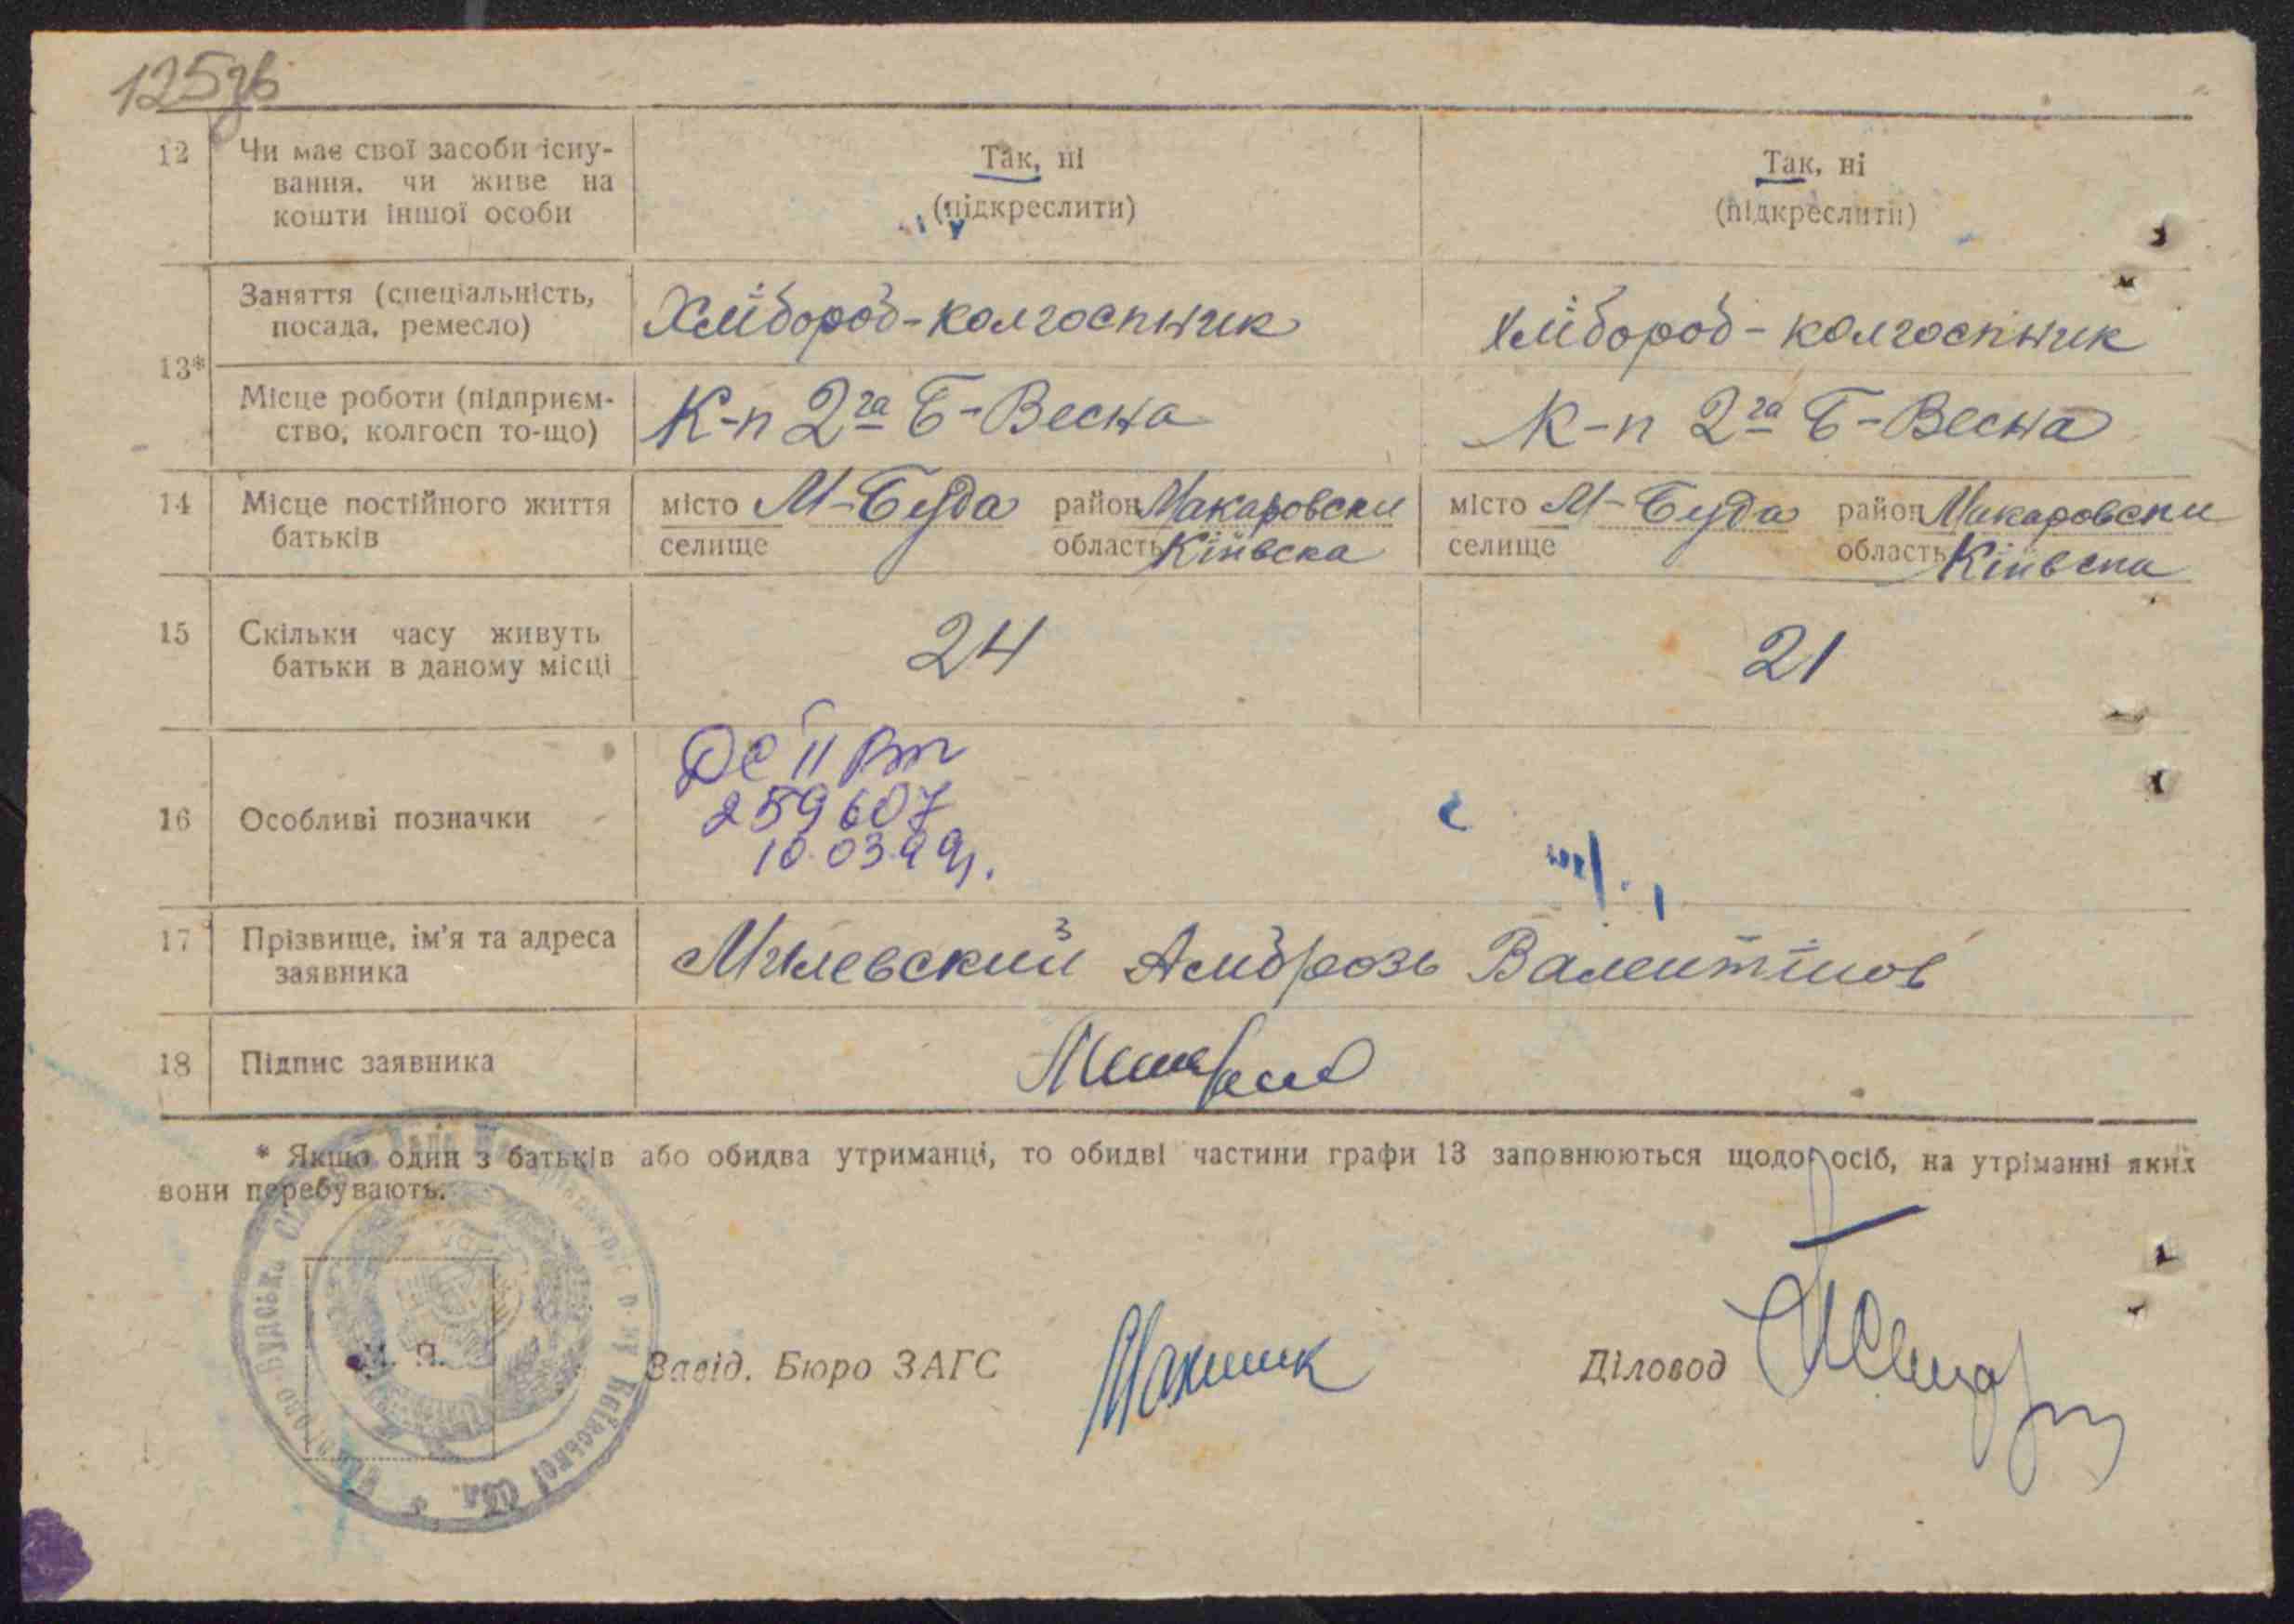 125зв
12 Чи має свої засоби існу-
вання, чи живе на
кошти іншої особи
Так, ні
(підкреслити)
Так, ні
(підкреслити)
13*
Заняття (спеціальність,
посада, ремесло)
Хлібороб-колгоспник
Хлібороб-колгоспник
Місце роботи (підприєм-
ство, колгосп то-що)
К-п 2га Б-Весна
К-п 2га Б-Весна
14 Місце постійного життя
батьків
місто М-Буда район Макаровски
селище область Київска
місто М-Буда район Макаровски
селище область Київска
15 Скільки часу живуть
батьки в даному місці
24
21
16 Особливі позначки
259607
17 Прізвище, ім'я та адреса
заявника
Милевский Амброзь Валентінов
18 Підпис заявника
* Якщо один з батьків або обидва утриманці, то обидві частини графи 13 заповнюються щодо осіб, на утріманні яких
вони перебувають.
Завід. Бюро ЗАГС
Діловод